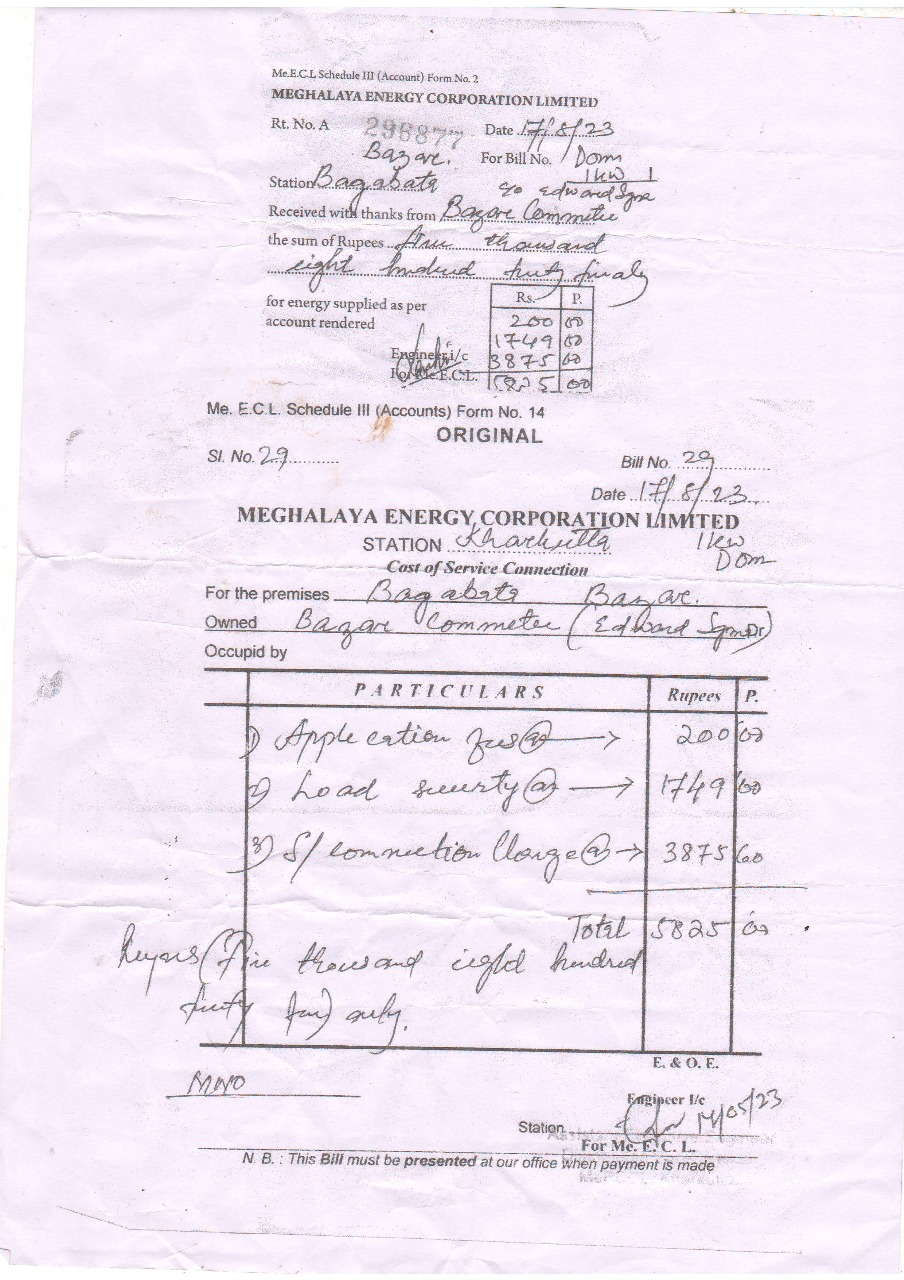 Me.E.C.L Schedule III (Account) Form No. 2
MEGHALAYA ENERGY CORPORATION LIMITED
Rt. No. A 296877 Date 17/8/23
Bazar. For Bill No. / Dom
1 kw 1
Station Bagabata c/o Edward
Received with thanks from Bazar Commetee
the sum of Rupees five thousand
eight hundred
for energy supplied as per
account rendered
Rs. P.
200 00
1749 00
3875 00
5825 00
Engineer i/c
For Me.E.C.L.
Me. E.C.L. Schedule III (Accounts) Form No. 14
ORIGINAL
Sl. No. 29
Bill No. 29
Date 17/8/23
MEGHALAYA ENERGY CORPORATION LIMITED
STATION Kharkutta 1 kw
Dom
Cost of Service Connection
For the premises Bagabata Bazar.
Owned Bazar Commetee (Edward
Occupid by
PARTICULARS Rupees P.
1) Application fees @ → 200 00
2) Load security @ → 1749 00
3) S/connection Charge @ → 3875 00
Total 5825 00
Rupees (Five thousand eight hundred
only.
E. & O. E.
Engineer I/c
Station
For Me. E. C. L.
N. B. : This Bill must be presented at our office when payment is made